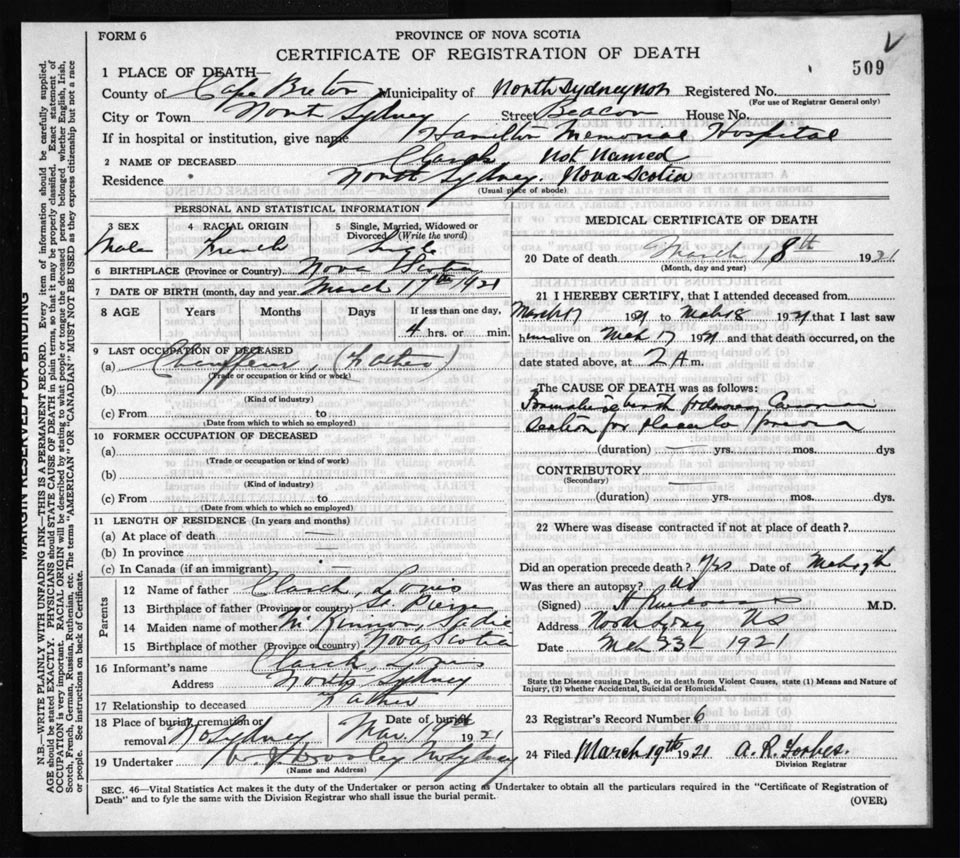 FORM 6
PROVINCE OF NOVA SCOTIA
CERTIFICATE OF REGISTRATION OF DEATH
509
1 PLACE OF DEATH—
County of Cape Breton Municipality of North Sydney N.S. Registered No.
(For use of Registrar General only)
City or Town North Sydney Street Beacon House No.
If in hospital or institution, give name Hamilton Memorial Hospital
2 NAME OF DECEASED Not Named
Residence North Sydney. Nova Scotia
(Usual place of abode)
PERSONAL AND STATISTICAL INFORMATION
3 SEX Male
4 RACIAL ORIGIN French
5 Single, Married, Widowed or Divorced (Write the word) Single
6 BIRTHPLACE (Province or Country) Nova Scotia
7 DATE OF BIRTH (month, day and year March 17th 1921
8 AGE Years Months Days If less than one day, 4 hrs. or min.
9 LAST OCCUPATION OF DECEASED
(a) Chauffeur (Father)
(Trade or occupation or kind of work)
(b)
(Kind of industry)
(c) From to
(Date from which to which so employed)
10 FORMER OCCUPATION OF DECEASED
(a)
(Trade or occupation or kind of work)
(b)
(Kind of industry)
(c) From to
(Date from which to which so employed)
11 LENGTH OF RESIDENCE (In years and months)
(a) At place of death —
(b) In province —
(c) In Canada (if an immigrant)
Parents
12 Name of father Louis
13 Birthplace of father (Province or country) St. Pierre
14 Maiden name of mother McKinnon, Sadie
15 Birthplace of mother (Province or country) Nova Scotia
16 Informant's name Louis
Address North Sydney
17 Relationship to deceased Father
18 Place of burial, cremation or removal No Sydney Date of burial Mar. 19th 1921
19 Undertaker N Sydney
(Name and Address)
MEDICAL CERTIFICATE OF DEATH
20 Date of death March 18th 1921
(Month, day and year)
21 I HEREBY CERTIFY, that I attended deceased from
March 17 1921 to Mch 18 1921 that I last saw
him alive on Mch 17 1921 and that death occurred, on the
date stated above, at 2 A.m.
The CAUSE OF DEATH was as follows:
Premature birth following Caesarean
section for placenta praevia
(duration) — yrs. mos. dys
CONTRIBUTORY
(Secondary) —
(duration) yrs. mos. dys.
22 Where was disease contracted if not at place of death?
Did an operation precede death? Yes Date of Mch 17th
Was there an autopsy? No
(Signed) M.D.
Address North Sydney NS
Date Mch 23d 1921
State the Disease causing Death, or in death from Violent Causes, state (1) Means and Nature of Injury, (2) whether Accidental, Suicidal or Homicidal.
23 Registrar's Record Number 6
24 Filed March 19th 1921 A. R. Forbes.
Division Registrar
SEC. 46—Vital Statistics Act makes it the duty of the Undertaker or person acting as Undertaker to obtain all the particulars required in the "Certificate of Registration of
Death" and to fyle the same with the Division Registrar who shall issue the burial permit.
(OVER)
MARGIN RESERVED FOR BINDING
N.B.—WRITE PLAINLY WITH UNFADING INK—THIS IS A PERMANENT RECORD. Every item of information should be carefully supplied.
AGE should be stated EXACTLY. PHYSICIANS should STATE CAUSE OF DEATH in plain terms, so that it may be properly classified. Exact statement of
OCCUPATION is very important. RACIAL ORIGIN will be described by stating to what people or tongue the deceased person belonged whether English, Irish,
Scotch, French, German, Russian, Ruthenian, etc. The terms "AMERICAN" OR "CANADIAN" MUST NOT BE USED as they express citizenship but not a race
or people. See instructions on back of Certificate.